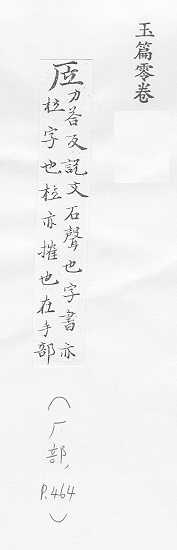 玉篇零卷
㕇
力荅反說文石聲也字書亦
拉字也拉亦摧也在手部
(厂部, P.464)